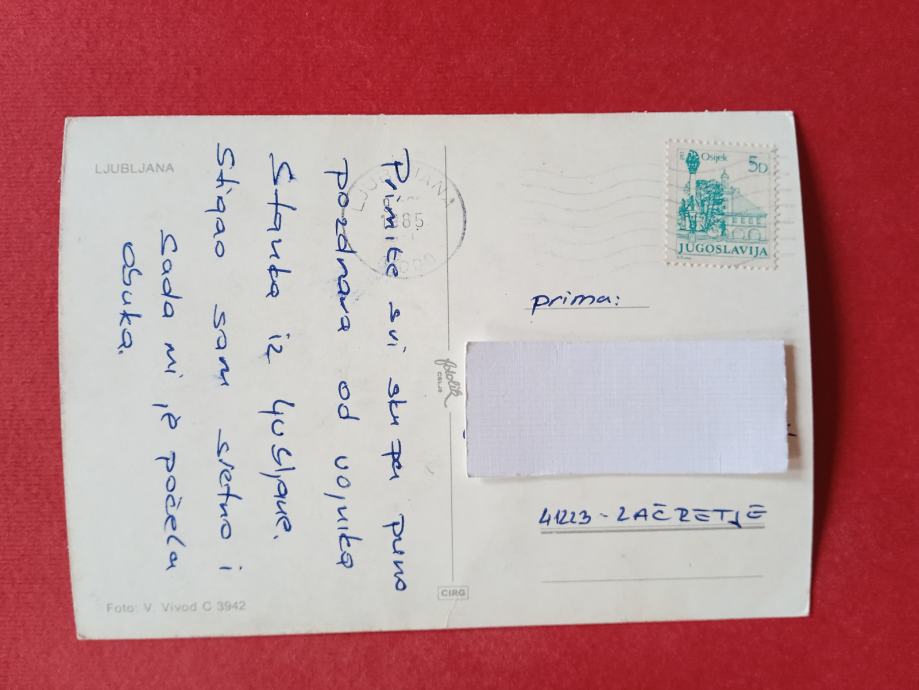 LJUBLJANA
Primite svi skupa puno
pozdrava od vojnika
Stanka iz Ljubljane.
Stigao sam sretno i
Sada mi je počela
obuka.
Foto: V. Vivod C 3942
LJUBLJANA
1985
fotolik
CELJE
CIRG
Osijek
5D
JUGOSLAVIJA
prima:
41223-ZAČRETJE